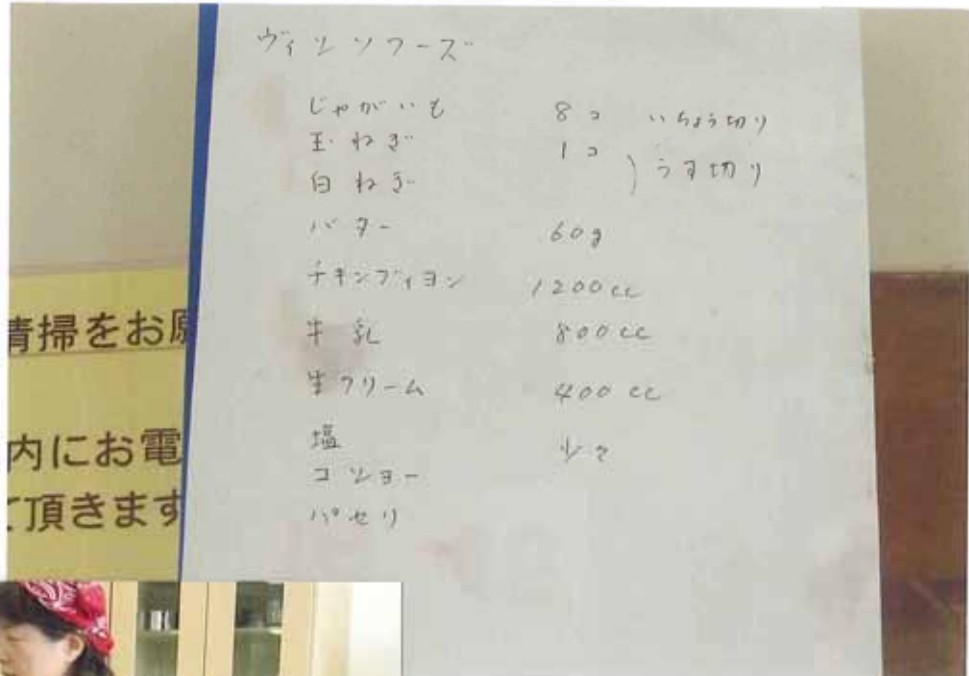 ヴィシソワーズ
じゃがいも 8コ いちょう切り
玉ねぎ 1コ
白ねぎ ) うす切り
バター 60g
チキンブイヨン 1200cc
牛乳 800cc
生クリーム 400cc
塩 少々
コショー
パセリ
清掃をお願
内にお電
て頂きます